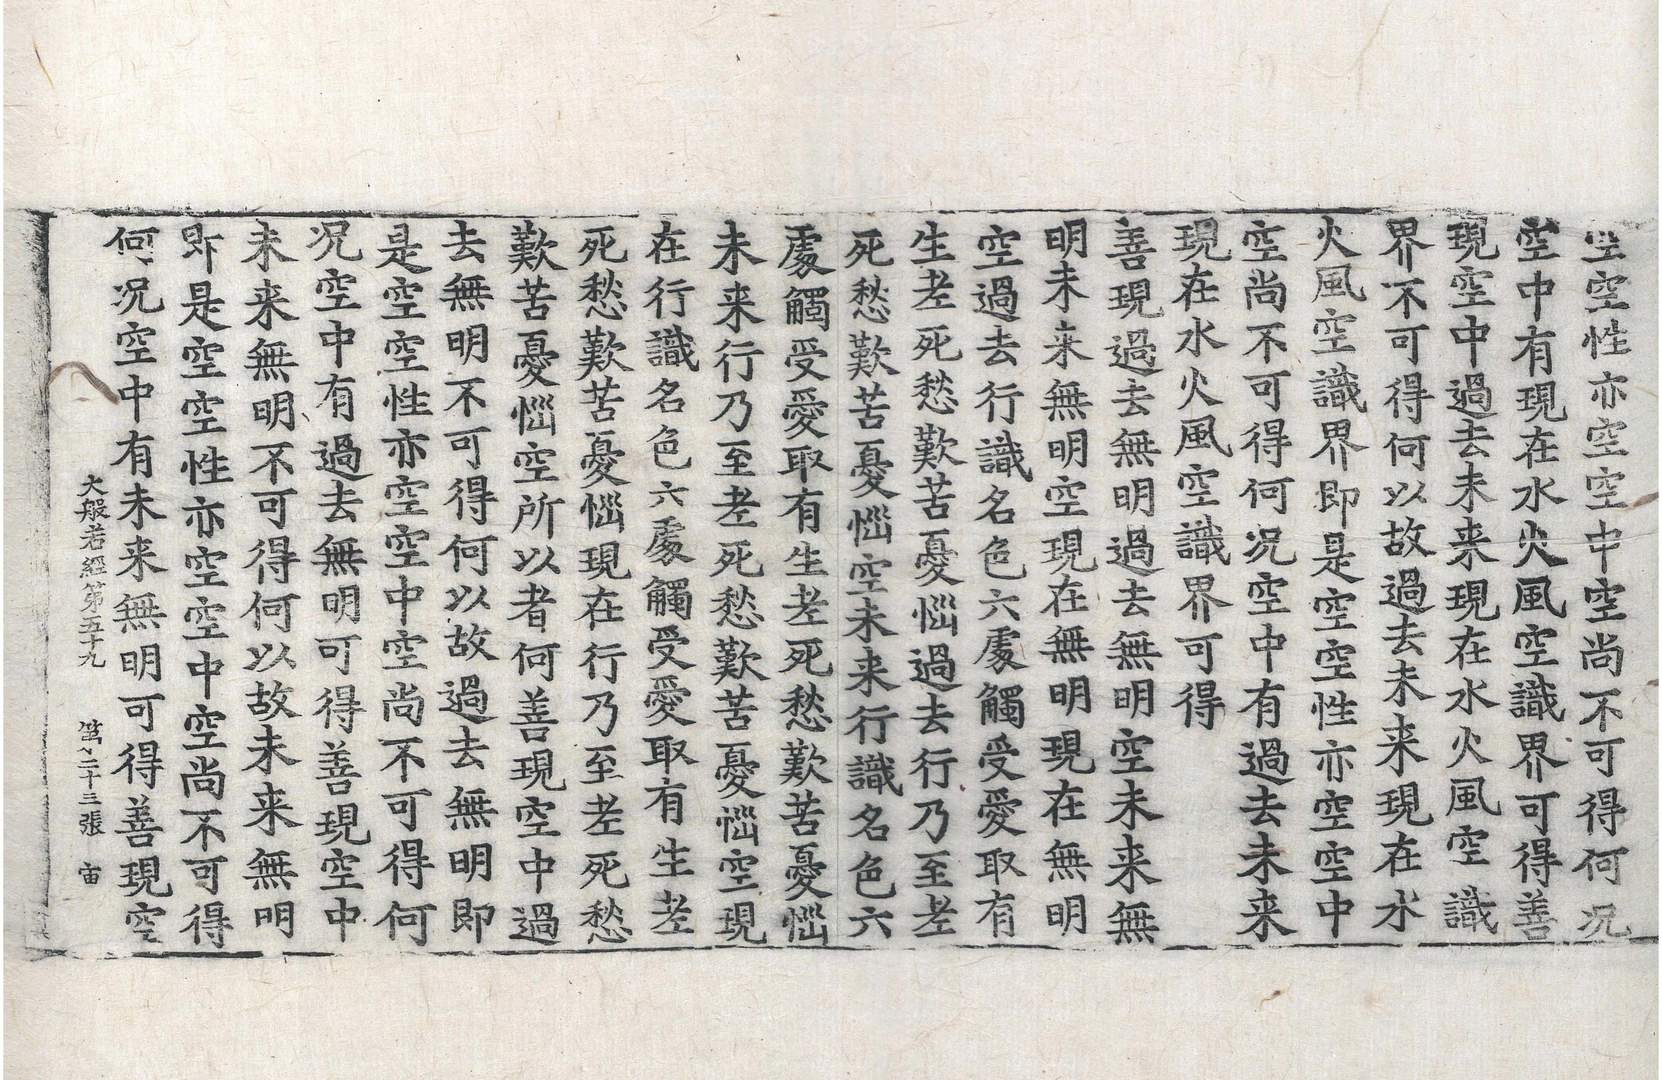 空空性亦空空中空尚不可得何况
空中有現在水火風空識界可得善
現空中過去未来現在水火風空識
界不可得何以故過去未来現在水
火風空識界即是空空性亦空空中
空尚不可得何况空中有過去未来
現在水火風空識界可得
善現過去無明過去無明空未来無
明未来無明空現在無明現在無明
空過去行識名色六處觸受愛取有
生老死愁歎苦憂惱過去行乃至老
死愁歎苦憂惱空未来行識名色六
處觸受愛取有生老死愁歎苦憂惱
未来行乃至老死愁歎苦憂惱空現
在行識名色六處觸受愛取有生老
死愁歎苦憂惱現在行乃至老死愁
歎苦憂惱空所以者何善現空中過
去無明不可得何以故過去無明即
是空空性亦空空中空尚不可得何
况空中有過去無明可得善現空中
未来無明不可得何以故未来無明
即是空空性亦空空中空尚不可得
何况空中有未来無明可得善現空
大般若經第五十九 第二十三張 宙